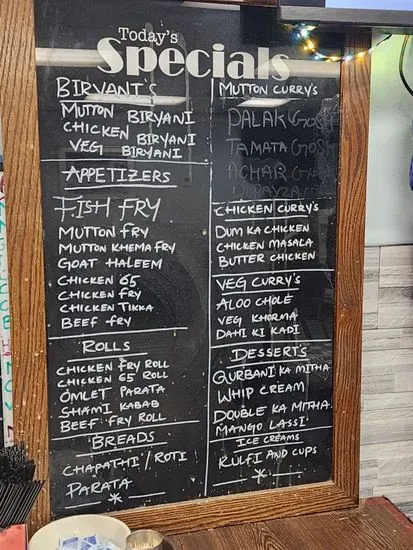 Today's
Specials
BIRYANI'S
MUTTON BIRYANI
CHICKEN BIRYANI
VEG BIRYANI
APPETIZERS
FISH FRY
MUTTON FRY
MUTTON KHEMA FRY
GOAT HALEEM
CHICKEN 65
CHICKEN FRY
CHICKEN TIKKA
BEEF FRY
ROLLS
CHICKEN FRY ROLL
CHICKEN 65 ROLL
OMLET PARATA
SHAMI KABAB
BEEF FRY ROLL
BREADS
CHAPATHI / ROTI
PARATA
MUTTON CURRY'S
PALAK GOSH
TAMATA GOSH
ACHAR GOSH
DOPAYZA
CHICKEN CURRY'S
DUM KA CHICKEN
CHICKEN MASALA
BUTTER CHICKEN
VEG CURRY'S
ALOO CHOLE
VEG KHORMA
DAHI KI KADI
DESSERTS
QURBANI KA MITHA
WHIP CREAM
DOUBLE KA MITHA
MANGO LASSI
ICE CREAMS
KULFI AND CUPS